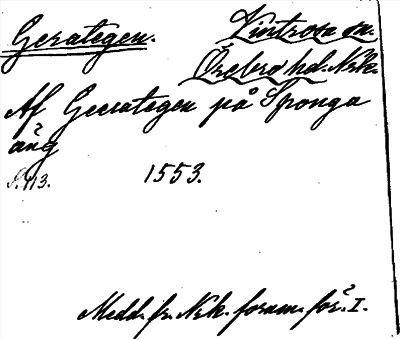 Gerategen. Vintrosa sn.
Örebro hd. Nrk.
Af Geerategen på Sponga
äng
S. 113. 1553.
Medd. fr. Nrk. fornm. för. I.